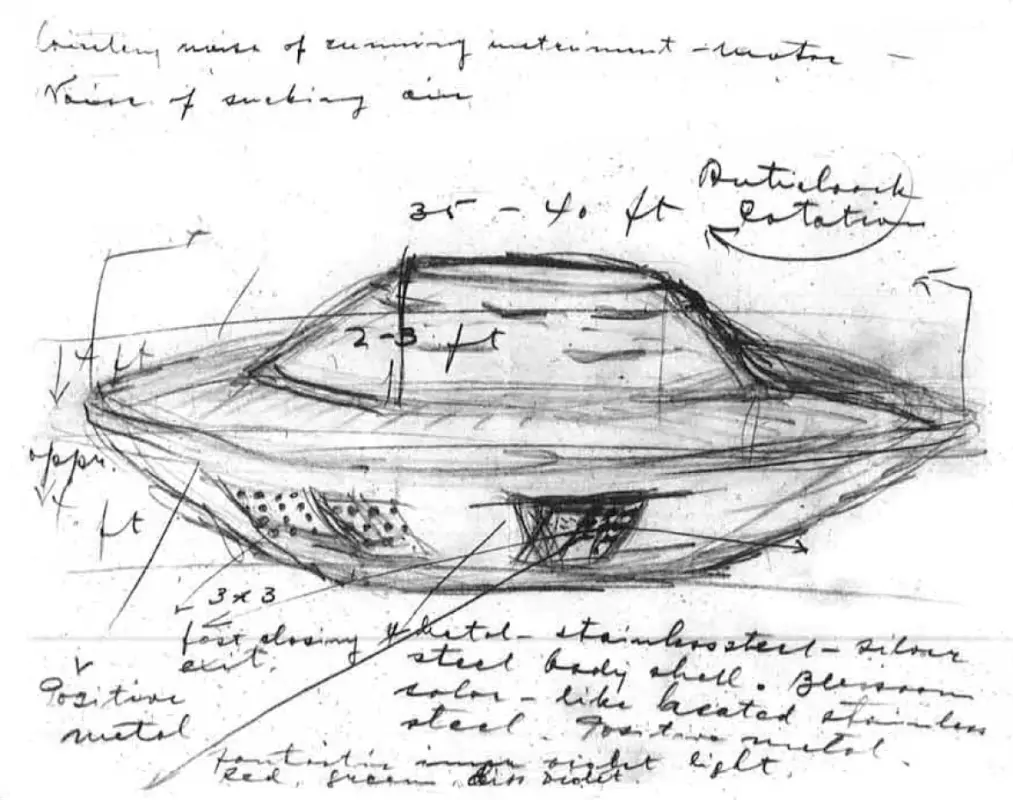 noise of running instrument - motor -
Noise of sucking air
Anticlock
Rotation
35 - 40 ft
2-3 ft
4 ft
appr.
4 ft
3 x 3
fast closing
exit.
Positive
metal
Metal - stainless steel - silver
steel body shell.
color - like heated stainless
steel. Positive metal.
fantastic inner violet light.
Red, green, violet.